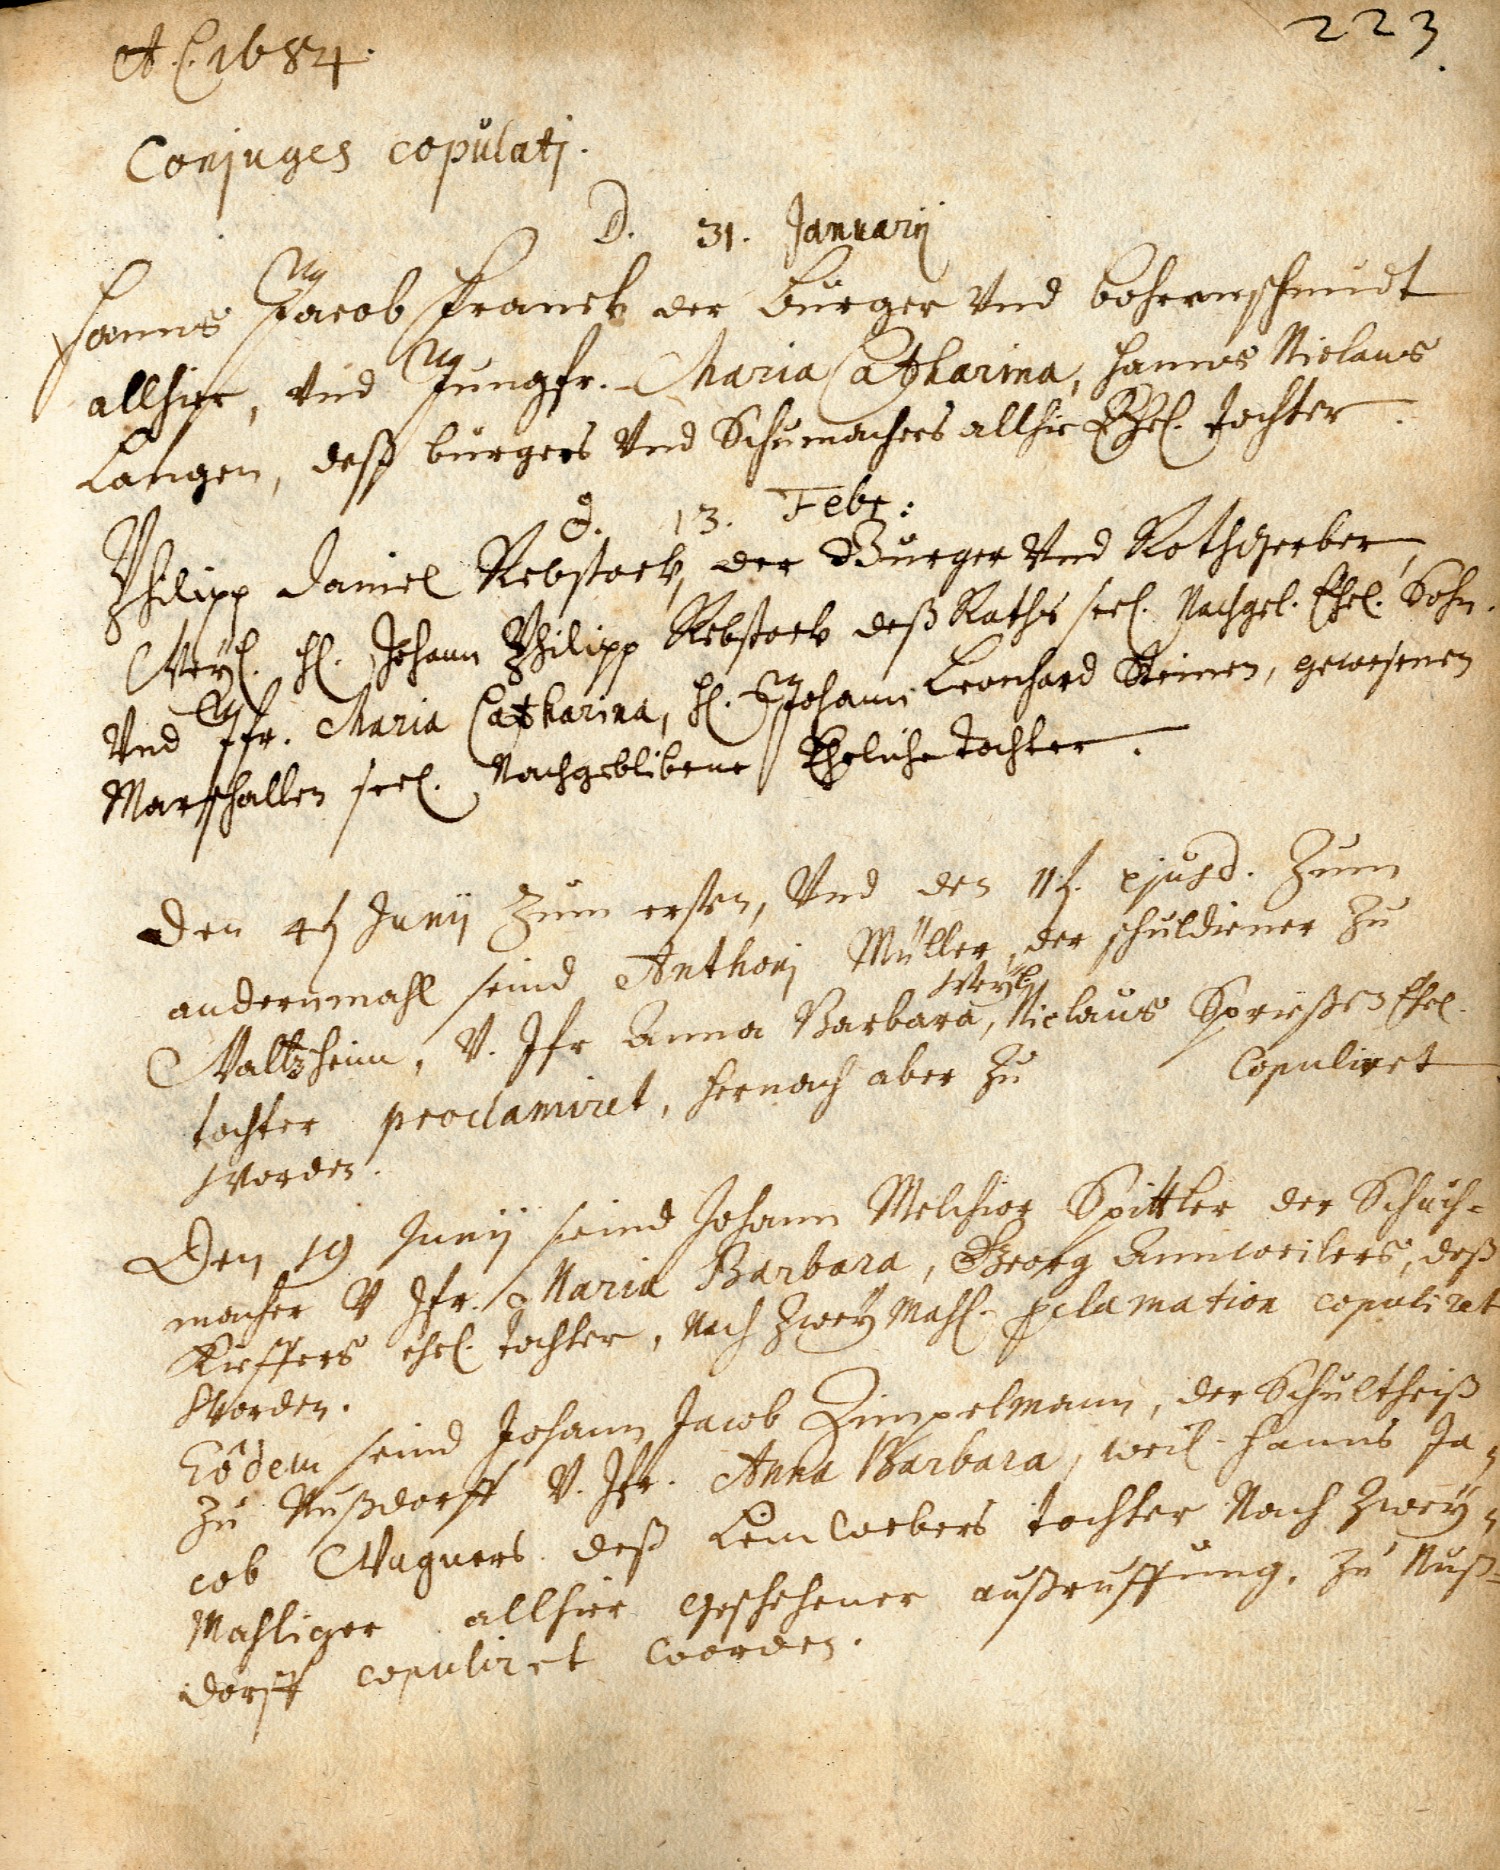 223.
A. C. 1684.
Conjuges copulatj.
D. 31. Januarij
Hanns Jacob Franck der Burger Vnd bohrenschmidt
allhier, Vnd Jungfr. Maria Catharina, Hanns Niclaus
Langen, deß burgers Vnd Schumachers allhie Ehel. tochter.
d. 13. Febr:
Philipp Daniel Rebstock, der Burger Vnd Rothgerber,
Weyl. H. Johann Philipp Rebstock deß Raths seel. Nachgel. Ehel. Sohn.
Vnd Jfr. Maria Catharina, H. Johann Leonhard Steinen, gewesenen
Marschallen seel. Nachgeblibene Eheliche tochter.
Den 4t Junij Zum ersten, Vnd den 11t. ejusd. Zum
andernmahl seind Anthonj Müller, der schuldiener zu
Waltzheim, V. Jfr Anna Barbara, Weyl. Niclaus Sprießen Ehel.
tochter proclamiret, hernach aber zu copuliret
worden.
Den 19 Junij seind Johann Melchior Spittler der Schuch-
macher V Jfr. Maria Barbara, Georg Annweilers, deß
Kieffers ehel. tochter, Nach Zwey Mahl. pclamation copuliret
worden.
Eôdem seind Johann Jacob Zimpelmann, der Schultheiß
zu Nußdorff V. Jfr. Anna Barbara, weil. Hanns Ja-
cob Wagners deß Leinwebers tochter Nach Zwey-
Mahliger allhier geschehener außruffung, zu Nuß-
dorff copuliret worden.